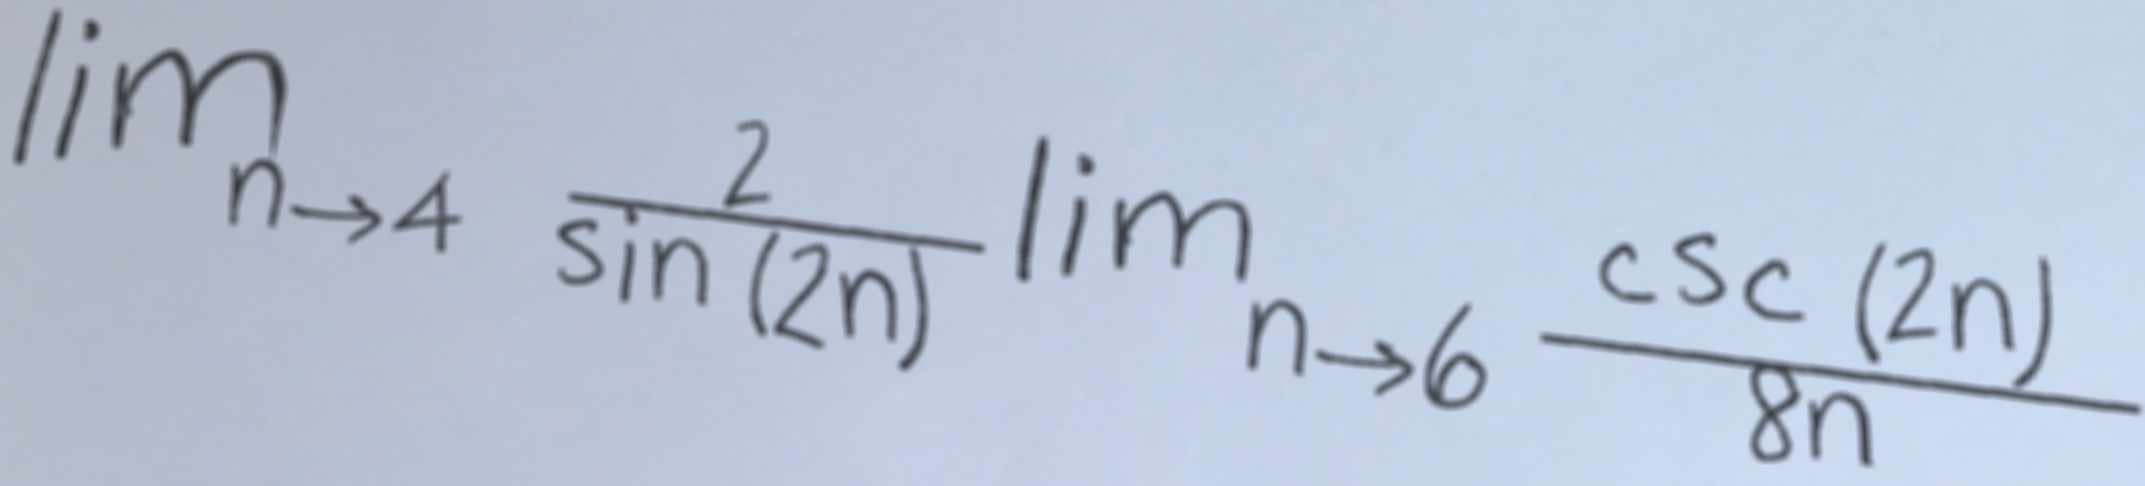 \lim_{n \to 4} \frac{2}{\sin(2n)} \lim_{n \to 6} \frac{\csc(2n)}{8n}